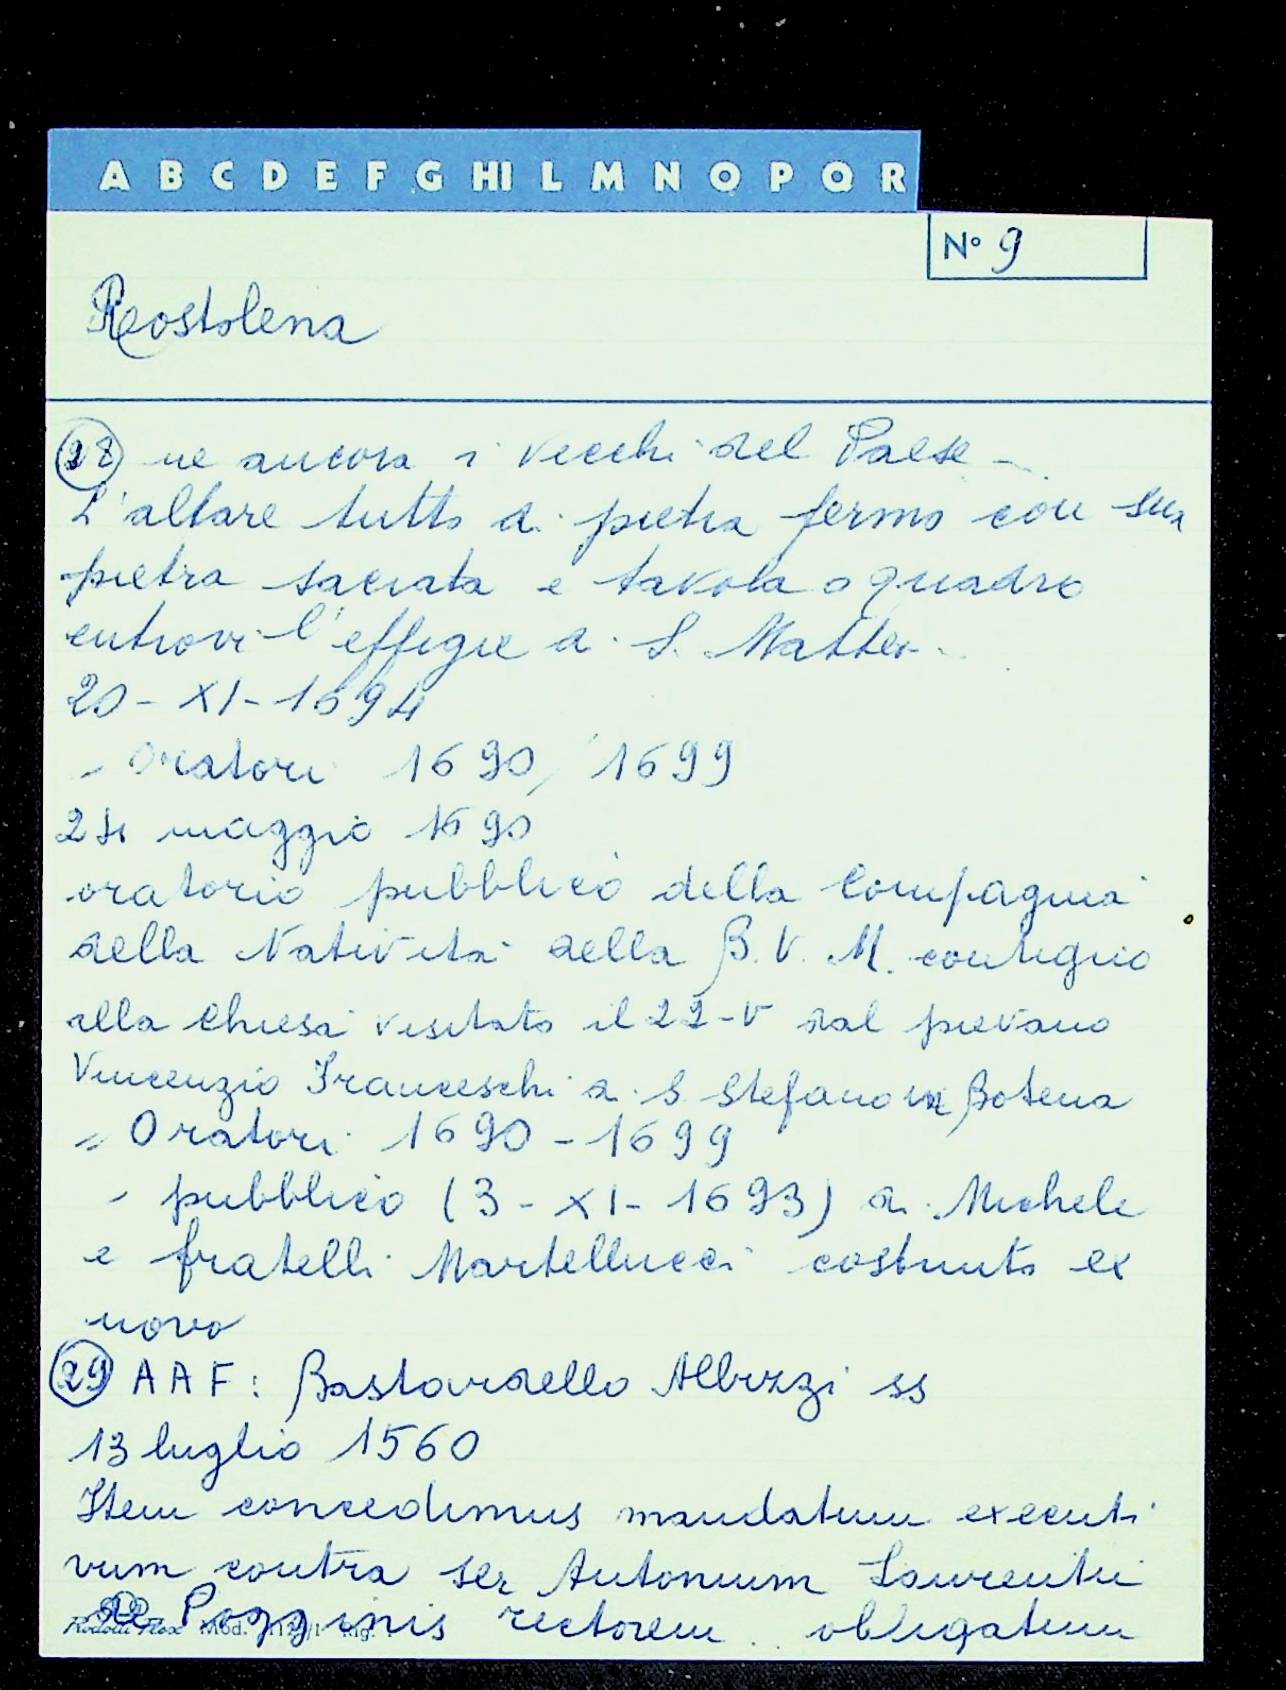 A B C D E F G HI L M N O P Q R
N° 9
Rostolena
28 ne ancora i vecchi del Paese -
L'altare tutto di pietra fermo con sua
pietra sacrata e tavola o quadro
entrovi l'effigie di S. Matteo.
20 - XI - 1694
- Oratori 1690, 1699
24 maggio 1690
oratorio pubblico della Compagnia
della Natività della B. V. M. contiguo
alla Chiesa visitato il 22-V dal pievano
Vincenzio Franceschi di S. Stefano in Botena
- Oratori 1690 - 1699
- pubblico (3 - XI - 1693) di Michele
e fratelli Martellucci costruito ex
novo
29 AAF: Bastardello Albizzi ss
13 luglio 1560
Item concedimus mandatum executi
vum contra ser Antonium Laurentii
de Pogginis rectorem obligatum
Mod.